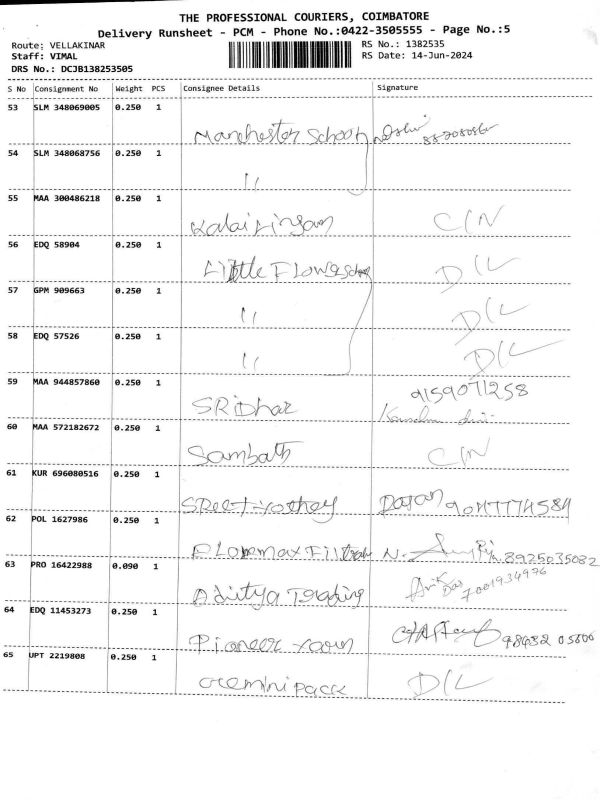 THE PROFESSIONAL COURIERS, COIMBATORE
Delivery Runsheet - PCM - Phone No.:0422-3505555 - Page No.:5
Route: VELLAKINAR RS No.: 1382535
Staff: VIMAL RS Date: 14-Jun-2024
DRS No.: DCJB138253505
S No Consignment No Weight PCS Consignee Details Signature
53 SLM 348069005 0.250 1
Manchester School
54 SLM 348068756 0.250 1
11
55 MAA 300486218 0.250 1
C/N
56 EDQ 58904 0.250 1
Little Flower School D/L
57 GPM 909663 0.250 1
11 D/L
58 EDQ 57526 0.250 1
11 D/L
59 MAA 944857860 0.250 1
SRiDhar 9159071258
60 MAA 572182672 0.250 1
Sambath C/N
61 KUR 696080516 0.250 1
9047774584
62 POL 1627986 0.250 1
N. 8925035082
63 PRO 16422988 0.090 1
Aditya Trading 7001934976
64 EDQ 11453273 0.250 1
Pioneer yarn
65 UPT 2219808 0.250 1
Gemini pack D/L